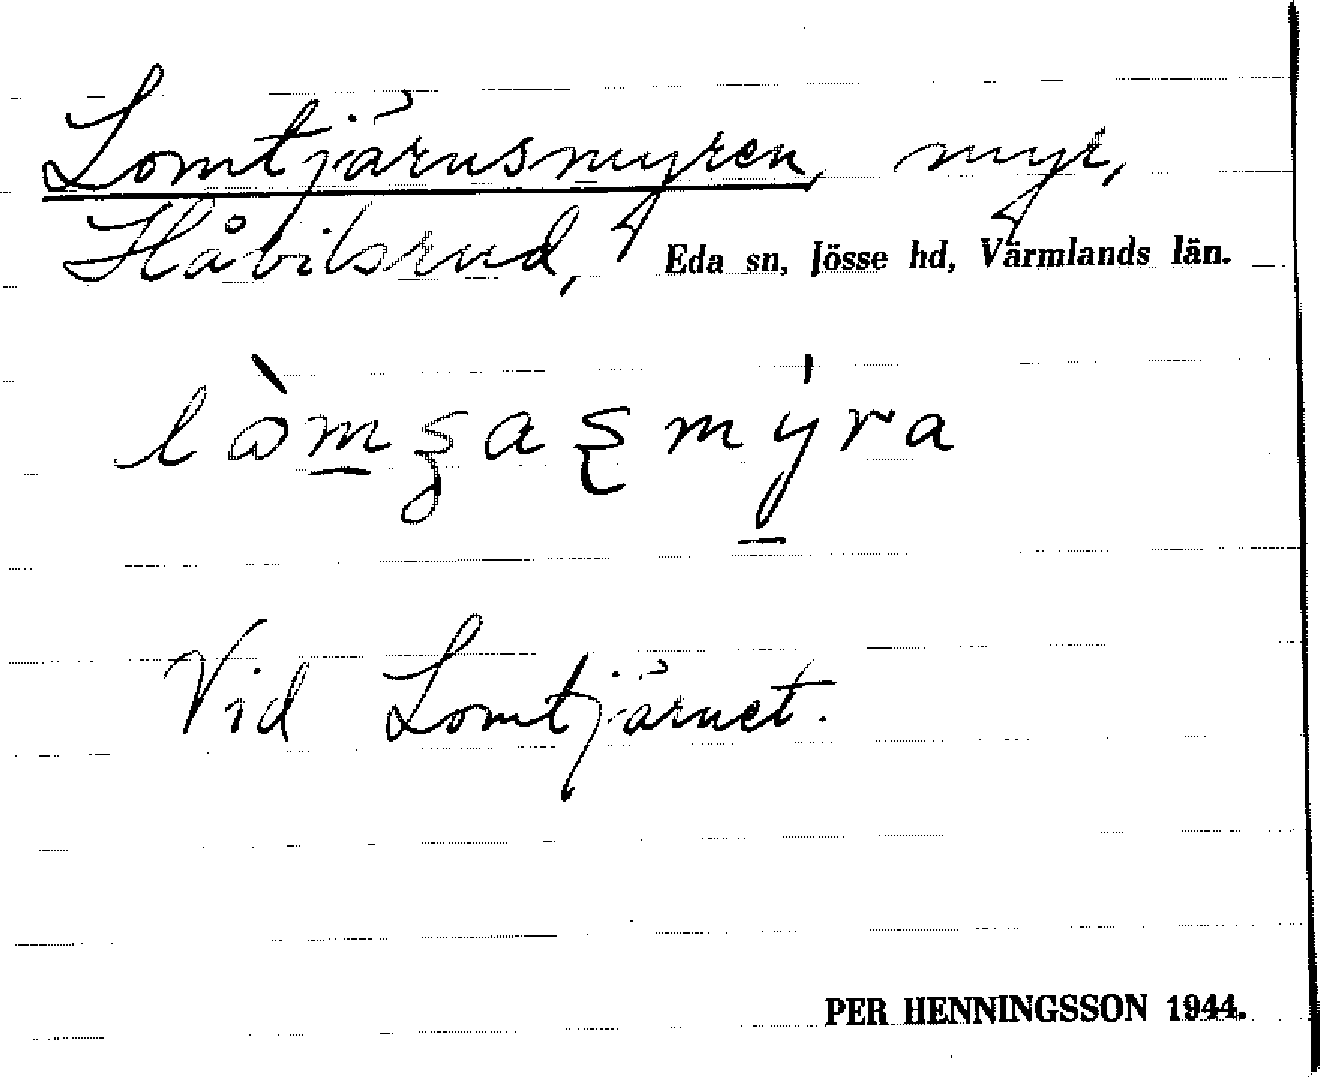 Lomtjärnsmyren, myr,
Håvilsrud, Eda sn, Jösse hd, Värmlands län.
Vid Lomtjärnet.
PER HENNINGSSON 1944.